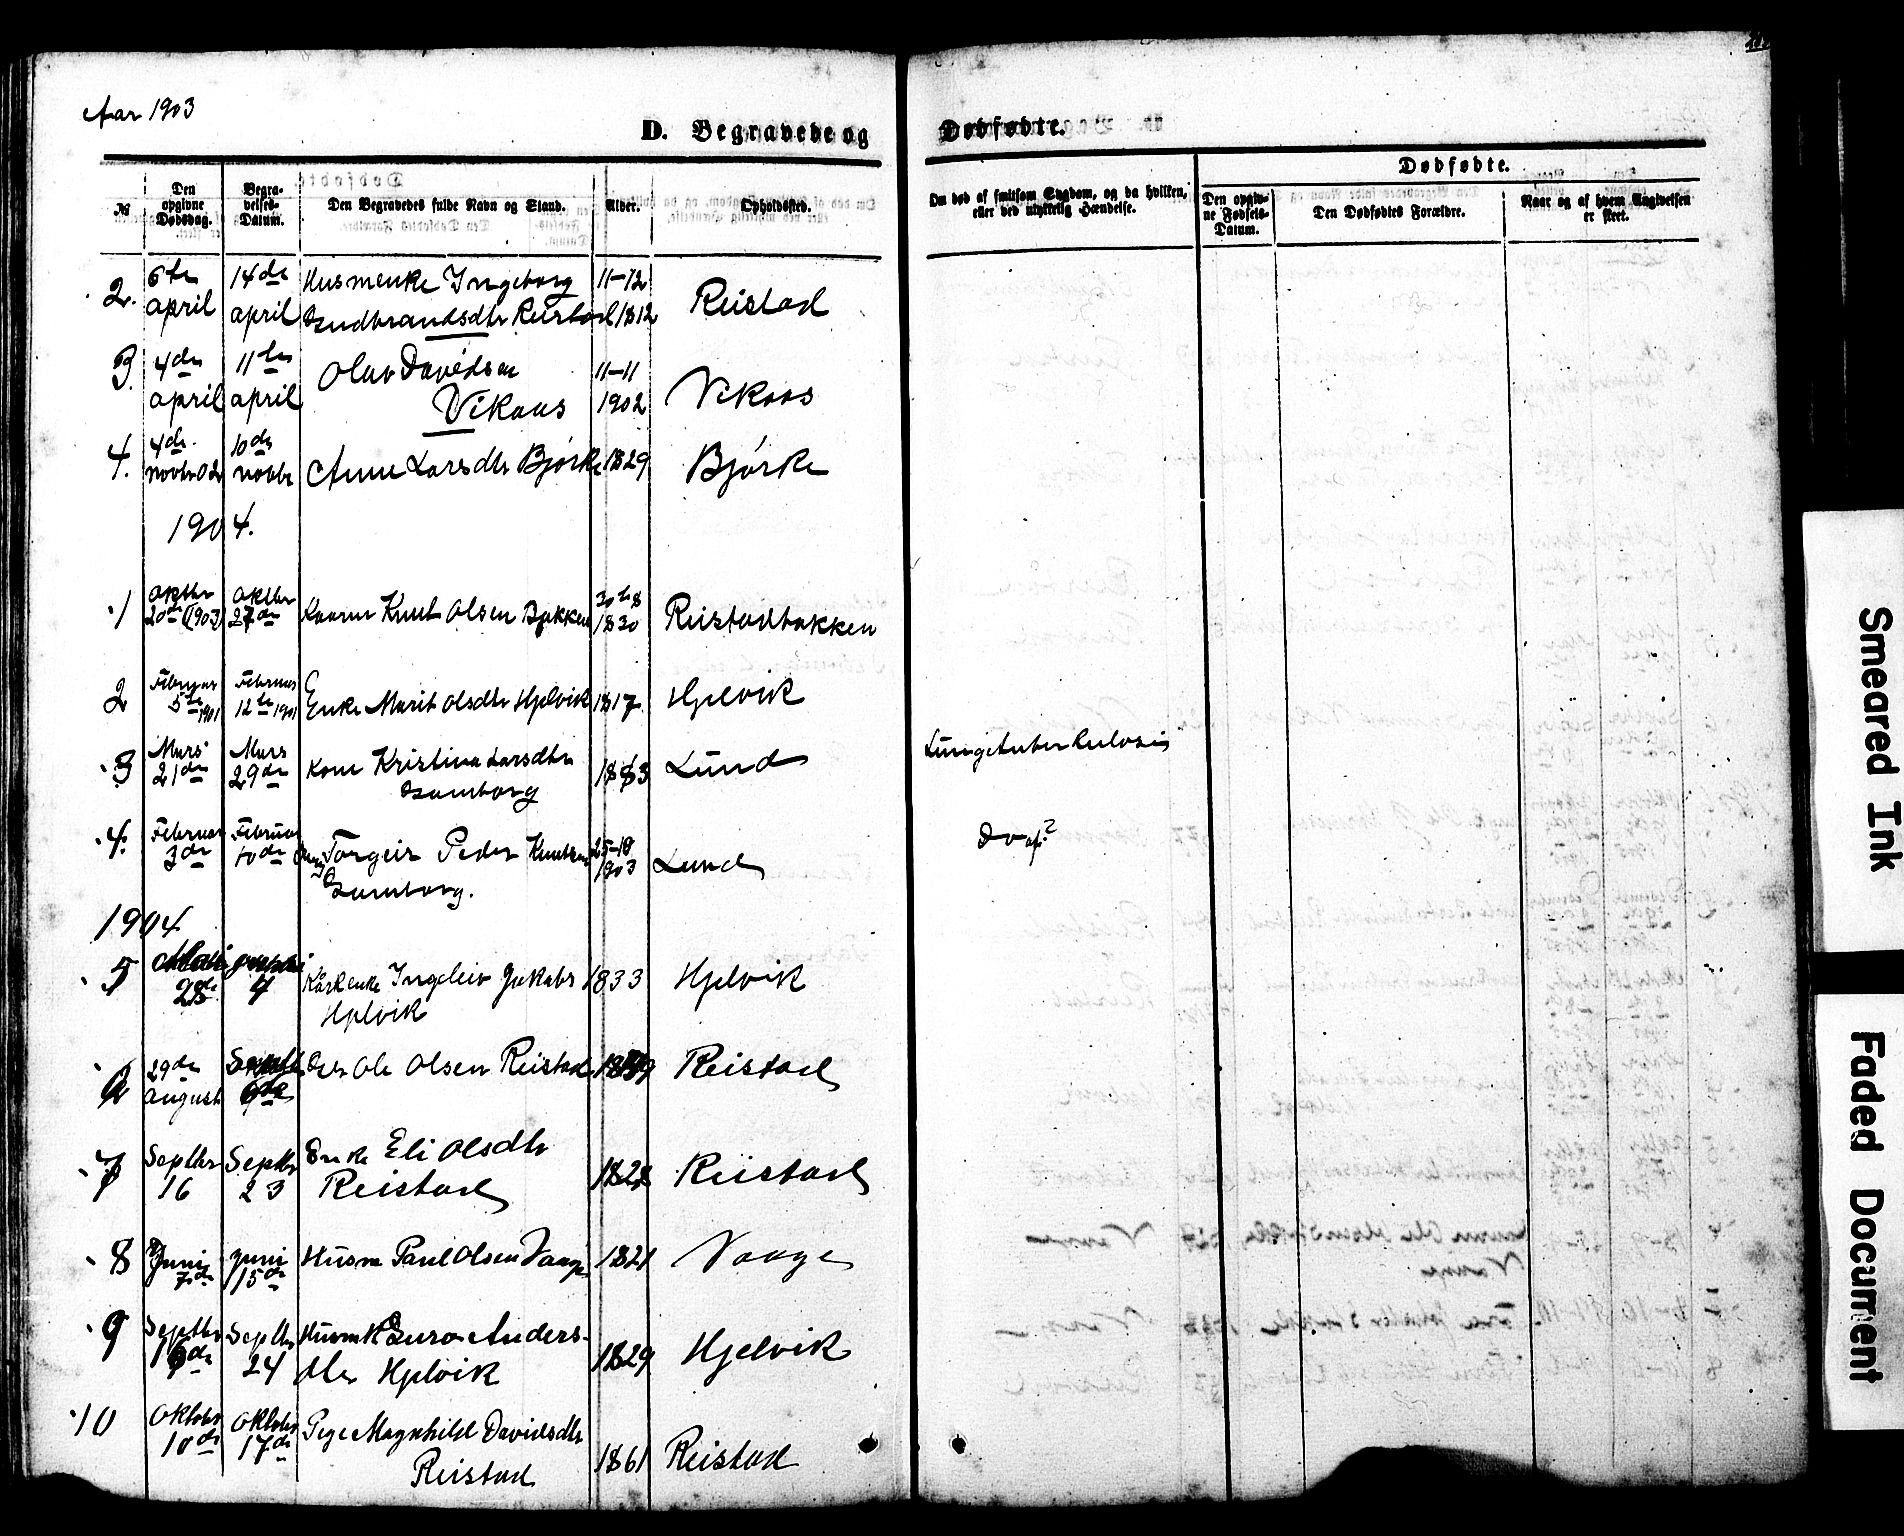 Aar 1903
D. Begravede og Dødfødte.
№
Den opgivne Dødsdag.
Begravelses-Datum.
Den Begravedes fulde Navn og Stand.
Alder.
Opholdssted.
Om død af smitsom Sygdom, og da hvilken, eller ved ulykkelig Hændelse.
Dødfødte.
Den opgivne Fødsels-Datum.
Den Dødfødtes Forældre.
Naar og af hvem Angivelsen er skeet.
2. 6te april 14de april Husmenke Ingeborg 11–12
Gudbrandsdtr Reistad 1812 Reistad
3. 4de april 11te april Olav Davidsen 11–11
Vikaas 1902 Vikaas
4. 4de novbr 02 10de novbr Anne Larsdtr Bjørke 1829 Bjørke
1904.
1 Oktbr 20de (1903) Oktbr 27de Kaarm Knut Olsen Bakken 1830 Reistadbakken
2 Februar 5te 1901 Februar 12te 1901 Enke Marit Olsdtr Hjelvik 1817 Hjelvik
3 Mars 21de Mars 29de Kone Kristina Larsdtr
Gamborg 1883 Lund Lungetuberkulosis
4. Februar 3de Februar 10de Torgeir Peder Knutsen 25–18
Gamborg. 1903 Lund do
1904
5 28de 4 Kaarenke Ingeleiv Jakobs 1833 Hjelvik
Hjelvik
6 29de August Septbr 6de Ole Olsen Reistad Reistad
7 Septbr 16 Septbr 23 Enke Eli Olsdtr
Reistad 1828 Reistad
8 Juni 7de Juni 15de Husm Paul Olsen Vaage 1821 Vaage
9 Septbr 16de Septbr 24 Husmk Guro Anders-
dtr Hjelvik 1829 Hjelvik
10 Oktober 10de Oktober 17de Pige Magnhild Davidsdtr
Reistad 1861 Reistad
Smeared Ink
Faded Document